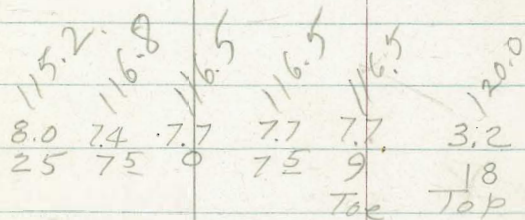 115.2. 116.8 116.5 116.5 116.5 120.0
8.0 7.4 7.7 7.7 7.7 3.2
25 7<u>5</u> 0 7<u>5</u> 9 18
Toe Top